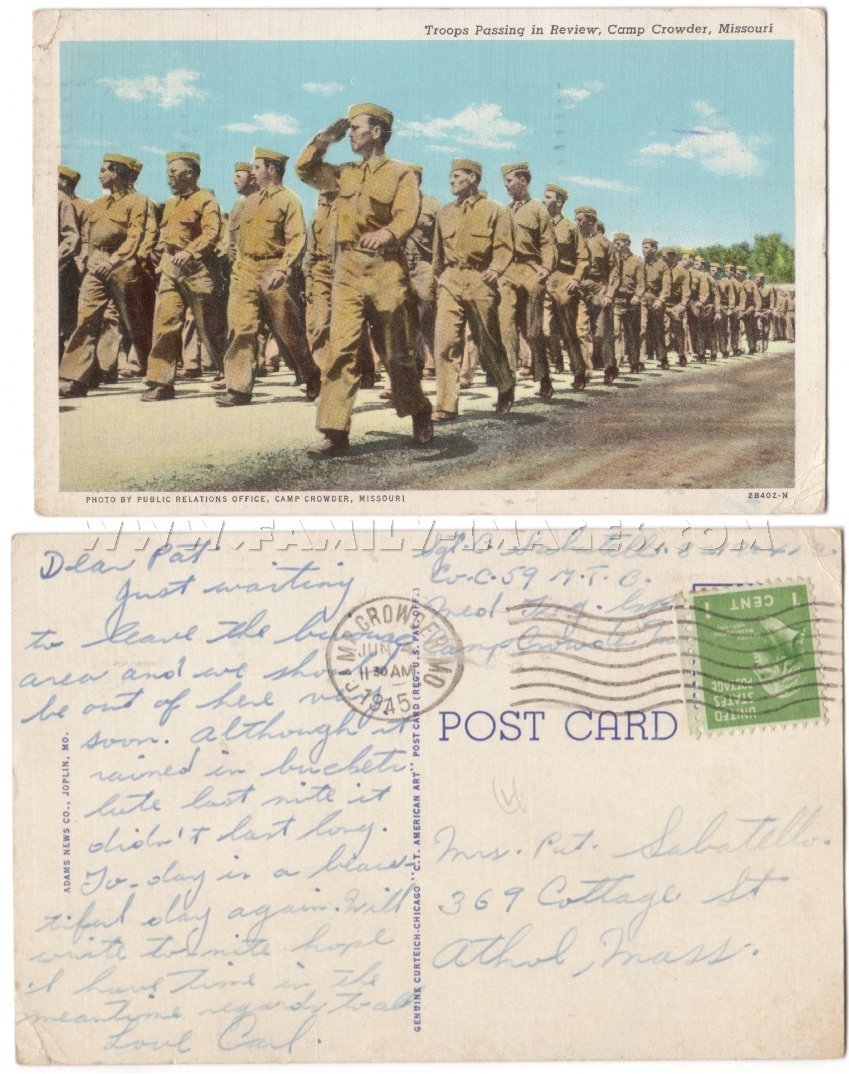 Troops Passing in Review, Camp Crowder, Missouri
PHOTO BY PUBLIC RELATIONS OFFICE, CAMP CROWDER, MISSOURI
2B402-N
WWW.FAMILY-IMAGES.COM
Dear Pat.
Just waiting
to leave the bivouac
area and we should
be out of here very
soon. Although it
rained in buckets
late last nite it
didn't last long.
To-day is a beau-
tiful day again. Will
write to-nite hope
I have time in the
meantime regards to all
Love Carl.
Sgt. C. Sabatello
Co-C-59 M.T.B.
Med. Tng.
Camp Crowder
CAMP CROWDER, MO
JUN
11 30 AM
1945
1 CENT 1
UNITED
STATES
POSTAGE
POST CARD
Mrs. Pat. Sabatello.
369 Cottage St
Athol, Mass.
ADAMS NEWS CO., JOPLIN, MO.
GENUINE CURTEICH-CHICAGO "C.T. AMERICAN ART" POST CARD (REG. U.S. PAT. OFF.)